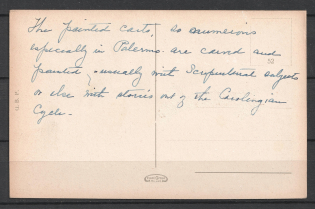 The painted carts, so numerous
especially in Palermo are carved and
painted, usually with Scriptural subjects
or else with stories out of the Carolingian
Cycle.